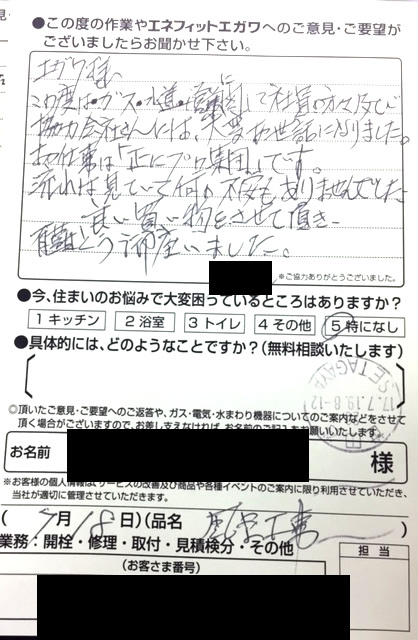 ●この度の作業やエネフィットエガワへのご意見・ご要望が
ございましたらお聞かせ下さい。
エガワ様、
この度は・ガス・水道・に関して社員の方々及び
協力会社さんには、大変お世話になりました。
お仕事は「正にプロ集団」です。
流れは見ていて何の不安もありませんでした
良い買い物をさせて頂き
有難とう御座いました。
※ご協力ありがとうございました。
●今、住まいのお悩みで大変困っているところはありますか?
1 キッチン 2 浴室 3 トイレ 4 その他 5 特になし
●具体的には、どのようなことですか?(無料相談いたします)
SETAGAYA
17.7.19.8-12
◎頂いたご意見・ご要望へのご返答や、ガス・電気・水まわり機器についてのご案内などをさせて
頂く場合がございますので、お差し支えなければ、お名前のご記入をお願いいたします。
お名前 様
※お客様の個人情報は、サービスの改善及び商品や各種イベントのご案内に限り利用させていただき、
当社が適切に管理させていただきます。
(7月18日)(品名 工事
業務:開栓・修理・取付・見積検分・その他
担当
(お客さま番号)